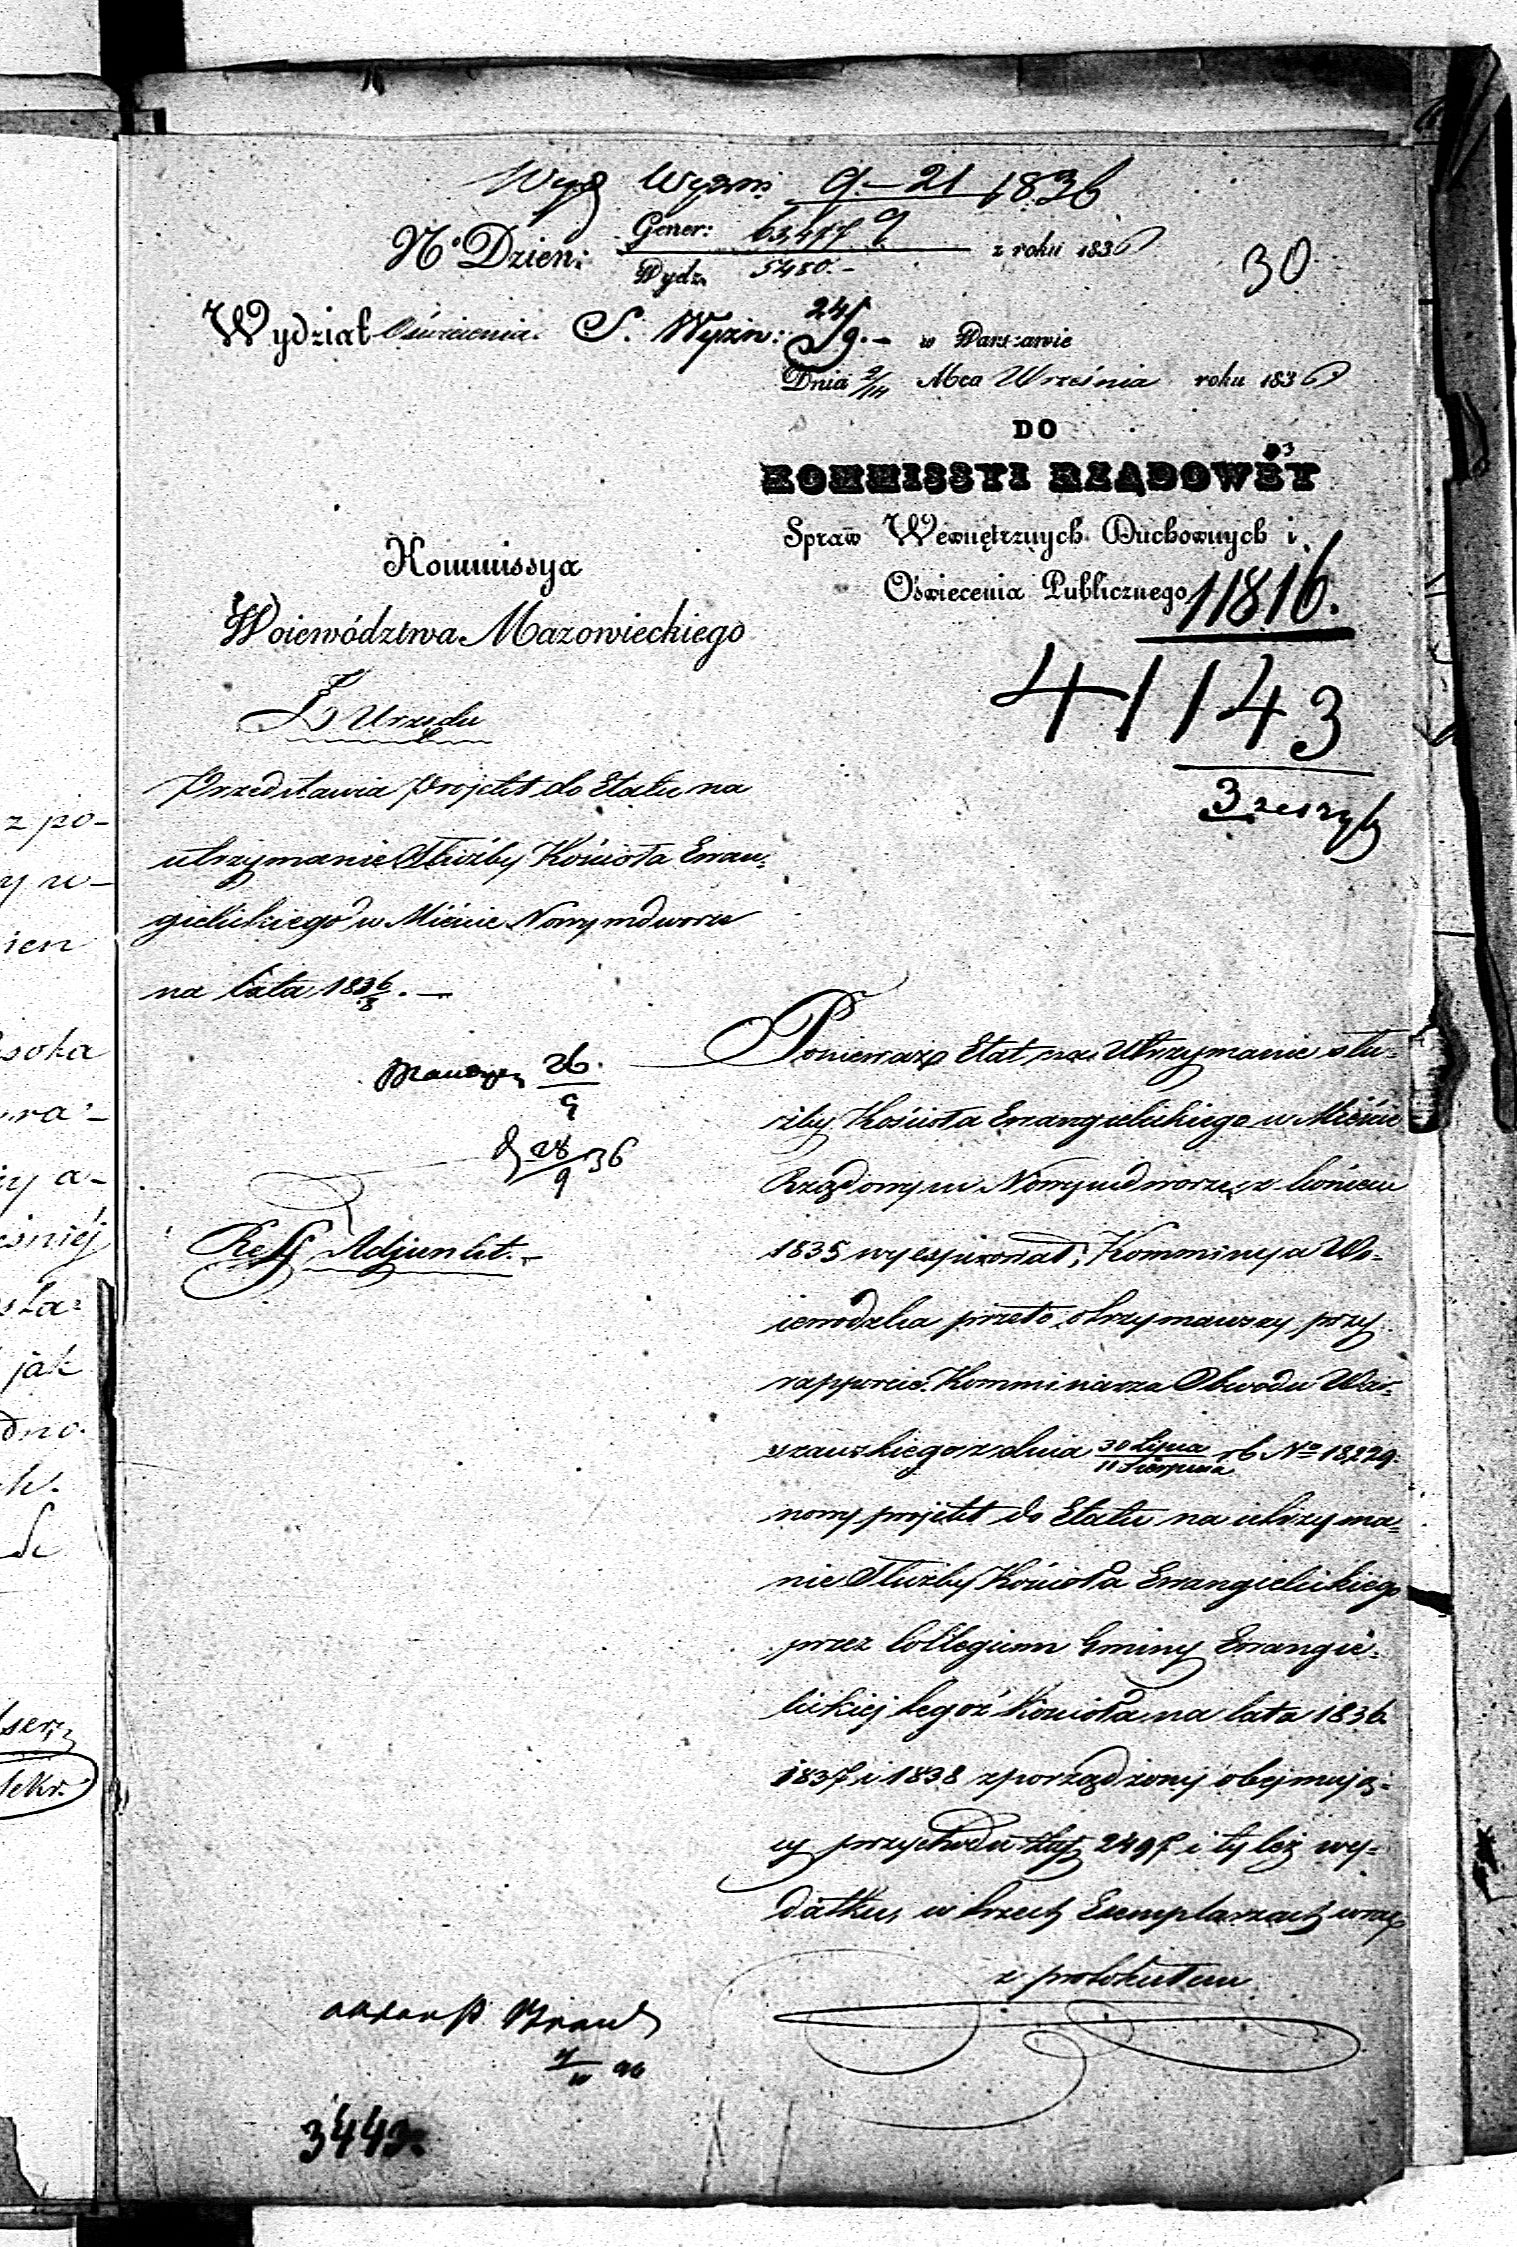 Wyd Wyzn: 9-21 1836
N° Dzien: Gener: 63,457 z roku 1836
Wydz. 5480.-
30
Wydział Oświecenia. S. Wyzn: 24/9.- w Warszawie
Dnia 2/14 Mca Września roku 1836
DO
KOMMISSYI RZĄDOWÉY
Spraw Wewnętrznych Duchownych i
Oświecenia Publicznego
11816.
41143
3 zeszyty
Kommissya
Woiewództwa Mazowieckiego
Z Urzędu
Przedstawia projekt do Etatu na
utrzymanie Służby Kościoła Ewan-
gielickiego w Mieście Nowymdworze
na lata 1836/8.-
26.
9
28
9 36
Adjunkt.-
Ponieważ Etat na Utrzymanie słu-
żby Kościoła Ewangielickiego w Mieście
Rządowym Nowymdworze, z końcem
1835 wyexpirował; Kommissya Wo-
iewodzka przeto otrzymawszy przy
rapporcie Kommissarza Obwodu War-
szawskiego z dnia 30 Lipca rb No 18,229.
11 Sierpnia
nowy projekt do Etatu na utrzyma-
nie Służby Kościoła Ewangielickiego
przez Collegium Gminy Ewangie-
lickiej tegoż Kościoła na lata 1836.
1837 i 1838 sporządzony obejmują-
cy przychodu złp 2497 i tyleż wy-
datku, w trzech Exemplarzach wraz
z protokułem
3443.
z po-
y w-
ien
soka
jak